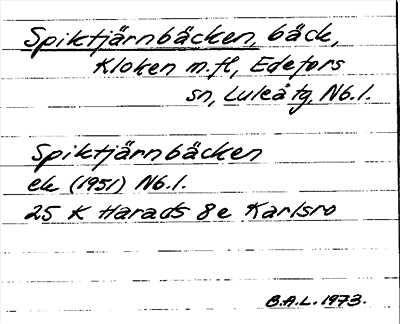 Spiktjärnbäcken, bäck,
Kloken m.fl, Edefors
sn, Luleå tg, Nb.l.
Spiktjärnbäcken
ek (1951) Nb.l.
25 K Harads 8e Karlsro
B.A.L. 1973.